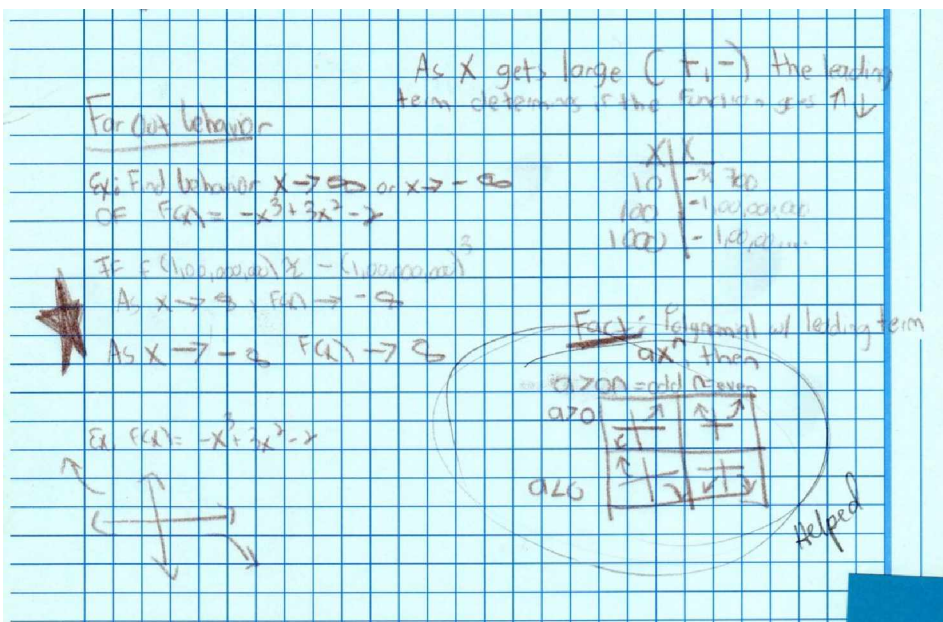 As X gets large (+,-) the leading
term determins if the function goes ↑↓
Far Out behavior
Ex: Find behavior X→∞ or x→-∞
OF F(x) = -x³+3x²-2
X
10 | -700
100
1000
IF F(1,00,000,00) ≈ -(1,00,000,00)³
As x→∞, F(x)→-∞
As X→-∞ F(x)→∞
Fact: Polynomial w/ leading term
axⁿ then
n=odd n=even
a>0
a<0
Ex. F(x)= -x³+3x²-2
Helped